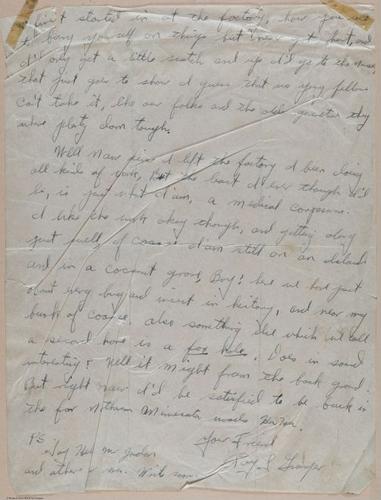 first started in at the factory, how you use
to bang yourself on things but never get hurt, and
I'd only get a little scratch and up I'd go to the nurse,
that just goes to show I guess that us yong fellows
can't take it, like our folks and the older generation they
where plenty down tough.
Well Now since I left the factory I been doing
all kinds of work, But the least I ever though I'd
be, is just what I am, a medical corpsman.
I like the work okey though, and getting along
just swell, of coarse I am still on an island
and in a cocanut grove, Boy! have we have just
about every bug and insect in history, and near my
bunk of coarse also something else which we call
a second home is a fox hole. Does in sound
interesting? Well it might from the back ground
But right now I'd be satisfied to be back in
the far Northern Minnesota woods
Your Friend
PS
Say Hello Mr
and others for me. Write soon